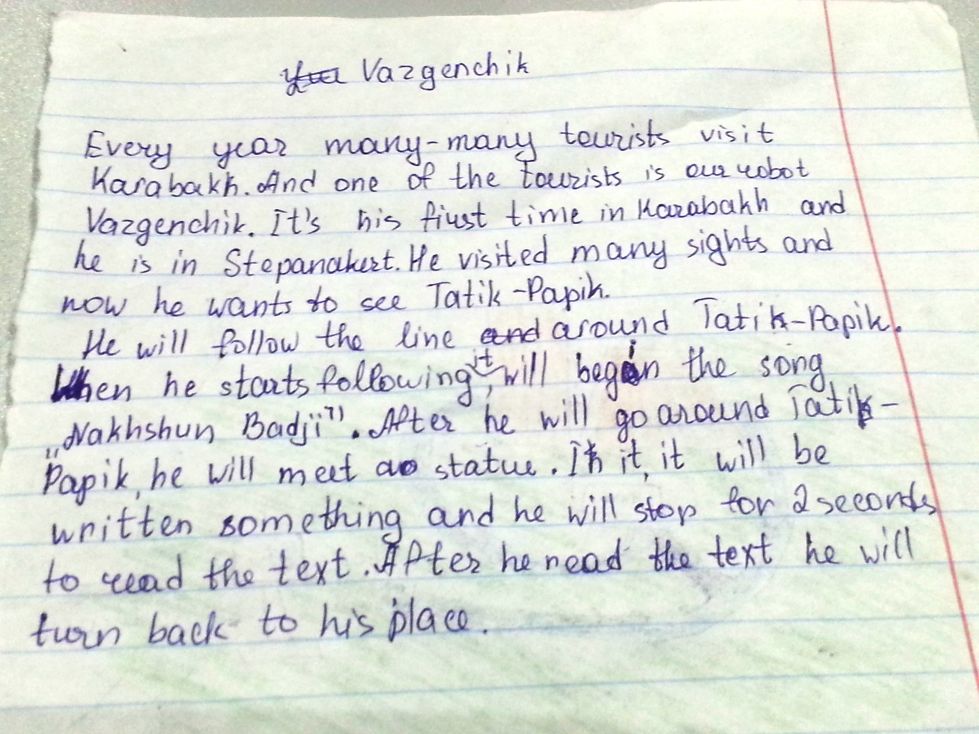 Vazgenchik
Every year many-many tourists visit
Karabakh. And one of the tourists is our robot
Vazgenchik. It's his first time in Karabakh and
he is in Stepanakert. He visited many sights and
now he wants to see Tatik-Papik.
He will follow the line around Tatik-Papik.
When he starts following it, will begin the song
„Nakhshun Badji". After he will go around Tatik-
Papik, he will meet a statue. In it, it will be
written something and he will stop for 2 seconds
to read the text. After he read the text he will
turn back to his place.